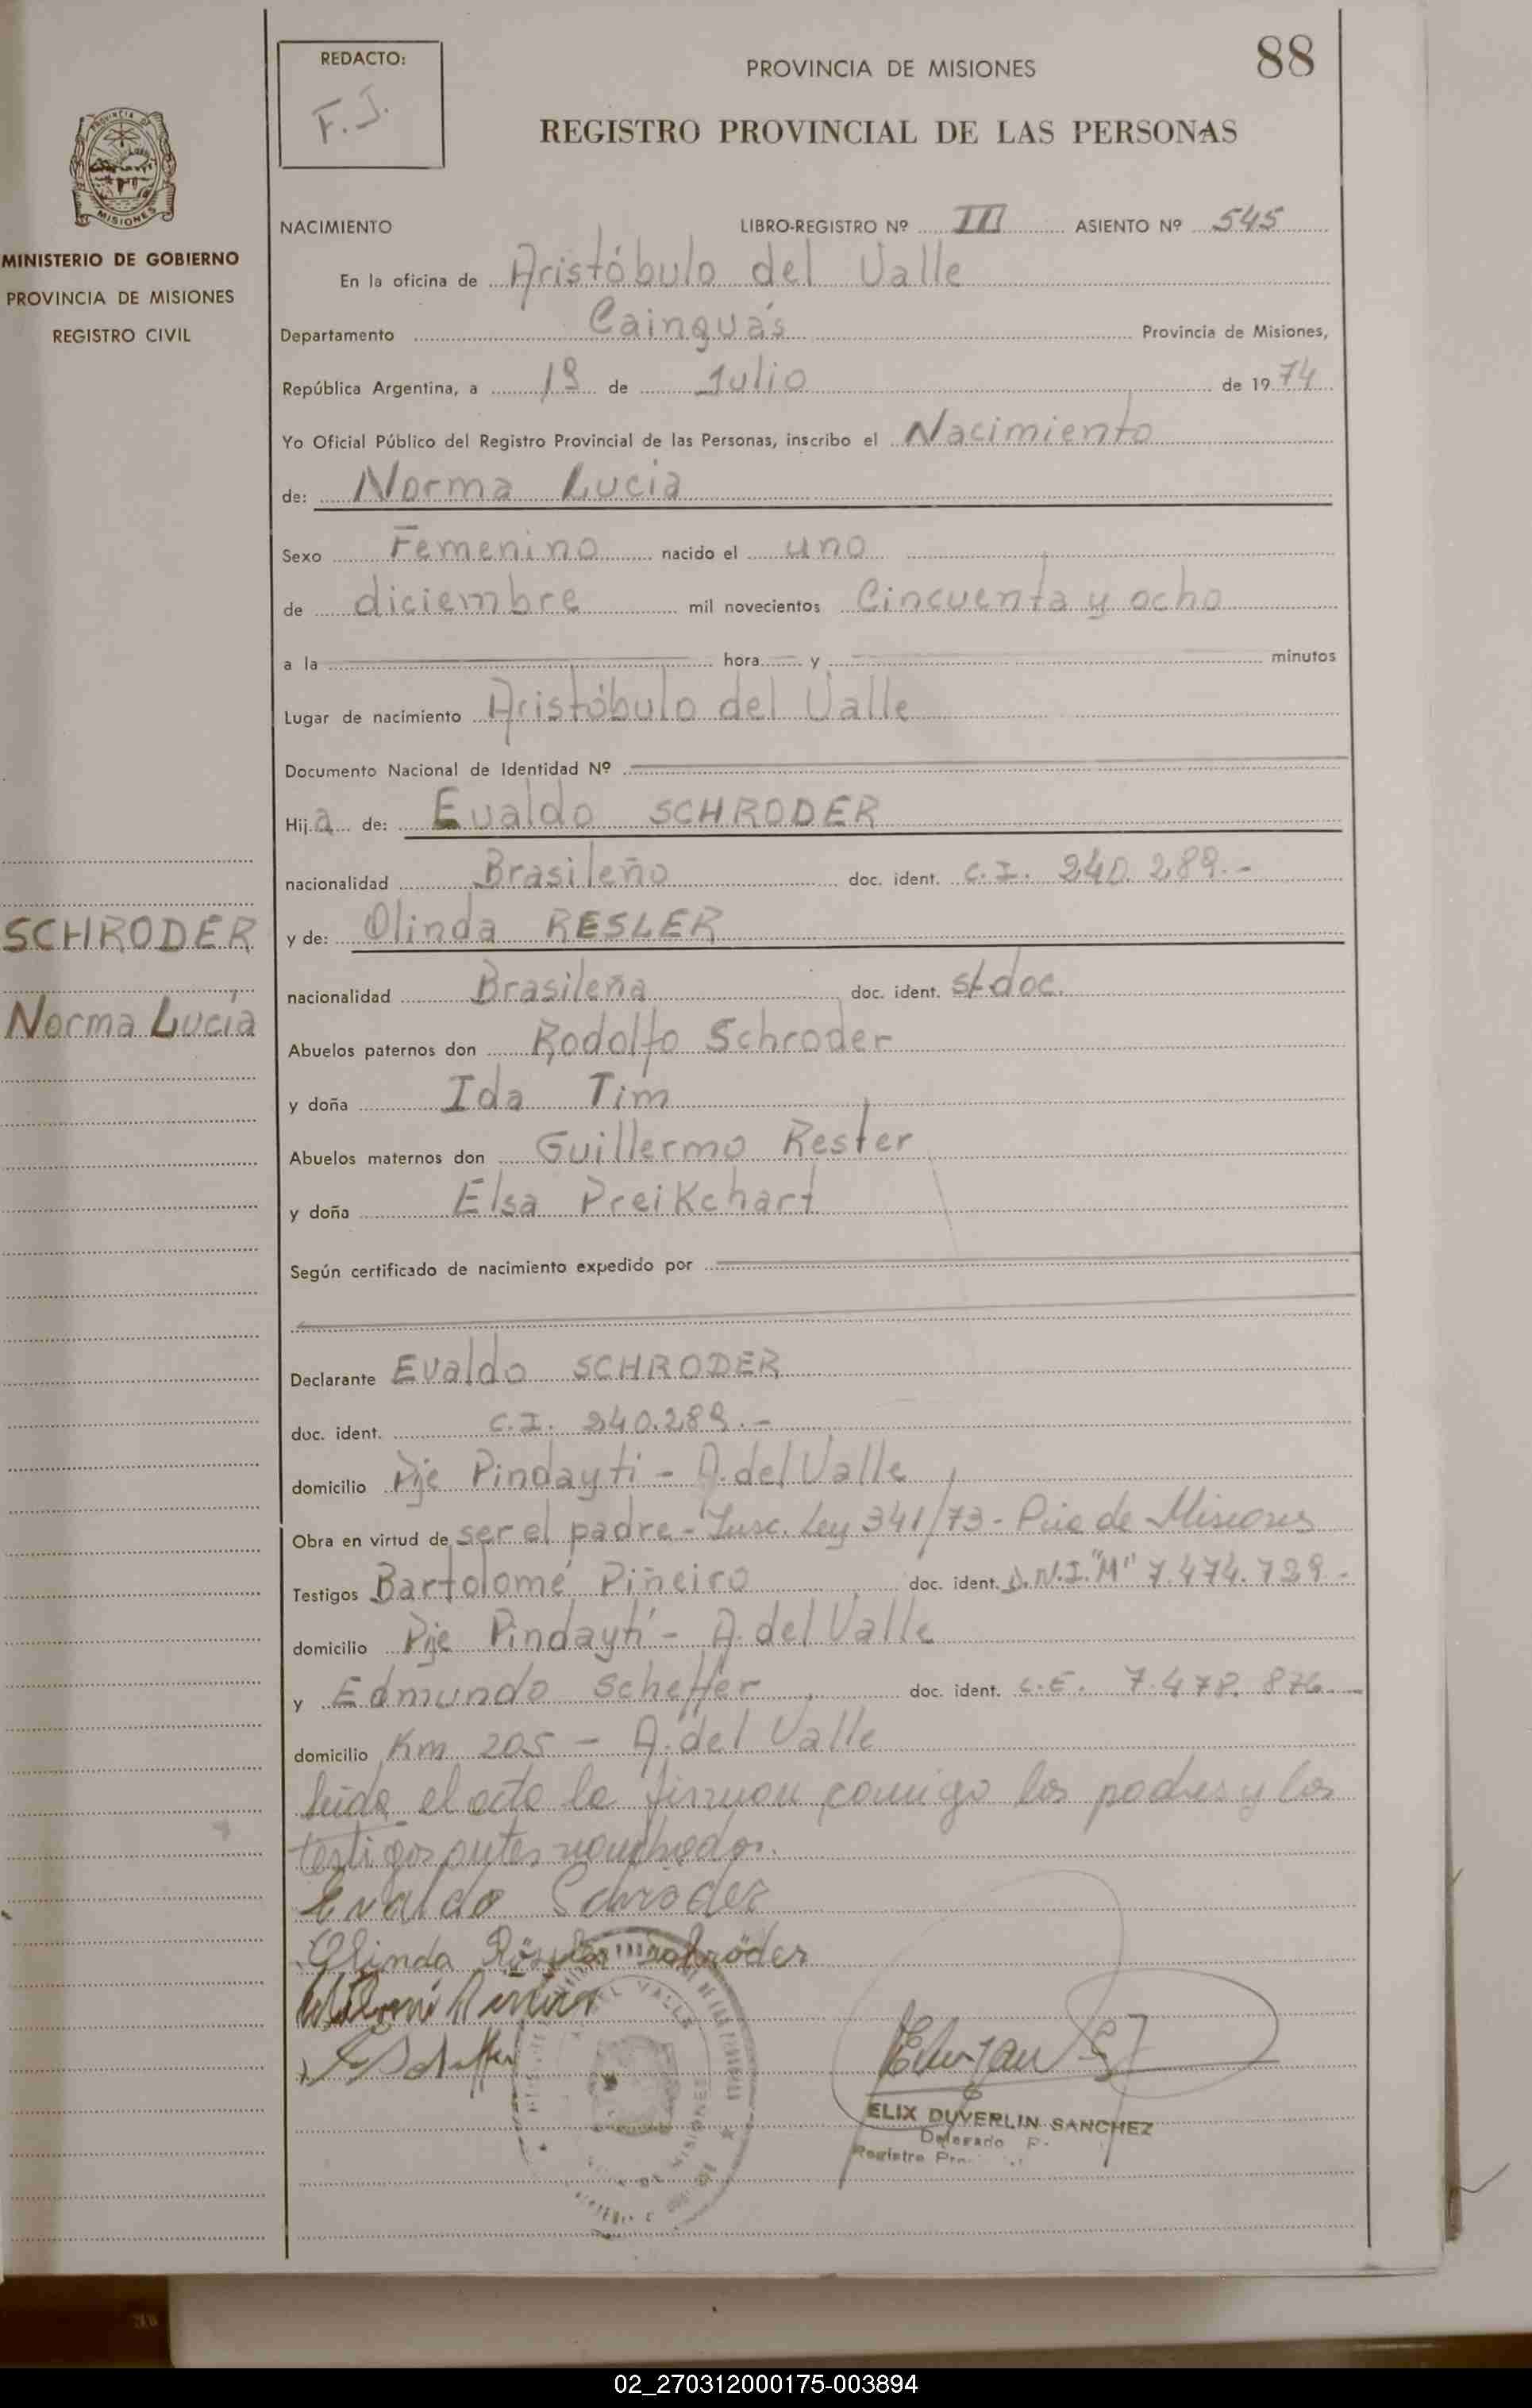 REDACTO:
F.J.
PROVINCIA DE MISIONES
88
REGISTRO PROVINCIAL DE LAS PERSONAS
PROVINCIA DE
MISIONES
MINISTERIO DE GOBIERNO
PROVINCIA DE MISIONES
REGISTRO CIVIL
NACIMIENTO LIBRO-REGISTRO Nº III ASIENTO Nº 545
En la oficina de Aristóbulo del Valle
Departamento Cainguás Provincia de Misiones,
República Argentina, a 19 de Julio de 1974
Yo Oficial Público del Registro Provincial de las Personas, inscribo el Nacimiento
de: Norma Lucia
Sexo Femenino nacido el uno
de diciembre mil novecientos Cincuenta y ocho
a la hora y minutos
Lugar de nacimiento Aristóbulo del Valle
Documento Nacional de Identidad Nº
Hija de: Evaldo SCHRODER
nacionalidad Brasileño doc. ident. C.I. 240.289.-
SCHRODER
y de: Olinda RESLER
nacionalidad Brasileña doc. ident. s/doc.
Norma Lucía
Abuelos paternos don Rodolfo Schroder
y doña Ida Tim
Abuelos maternos don Guillermo Rester
y doña Elsa Preikchart
Según certificado de nacimiento expedido por
Declarante Evaldo SCHRODER
doc. ident. C.I. 240.289.-
domicilio Pje Pindayti - A. del Valle
Obra en virtud de ser el padre - Insc. Ley 341/73 - Pcia de Misiones
Testigos Bartolomé Piñeiro doc. ident. D.N.I. "M" 7.474.729-
domicilio Pje Pindaytí - A. del Valle
y Edmundo Scheffer doc. ident. C.E. 7.478.876.-
domicilio Km 205 - A. del Valle
leida el acta la firman conmigo los padres y los
testigos antes nombrados.
Evaldo Schröder
Olinda Schröder
ELIX DUVERLIN SANCHEZ
Delegado
Registro
02_270312000175-003894